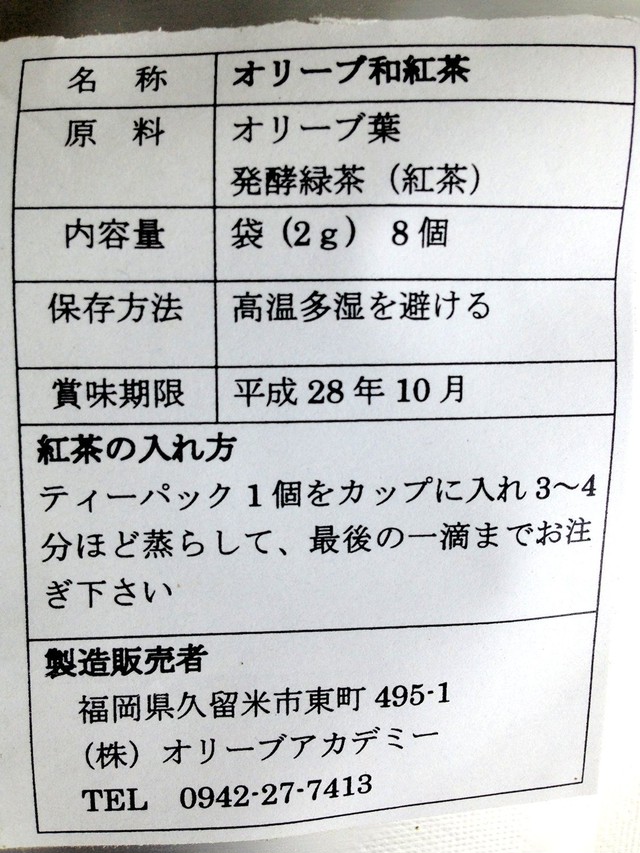 名 称 オリーブ和紅茶
原 料 オリーブ葉
発酵緑茶（紅茶）
内容量 袋（2ｇ） 8個
保存方法 高温多湿を避ける
賞味期限 平成28年10月
紅茶の入れ方
ティーパック1個をカップに入れ3～4
分ほど蒸らして、最後の一滴までお注
ぎ下さい
製造販売者
福岡県久留米市東町495-1
（株）オリーブアカデミー
TEL 0942-27-7413